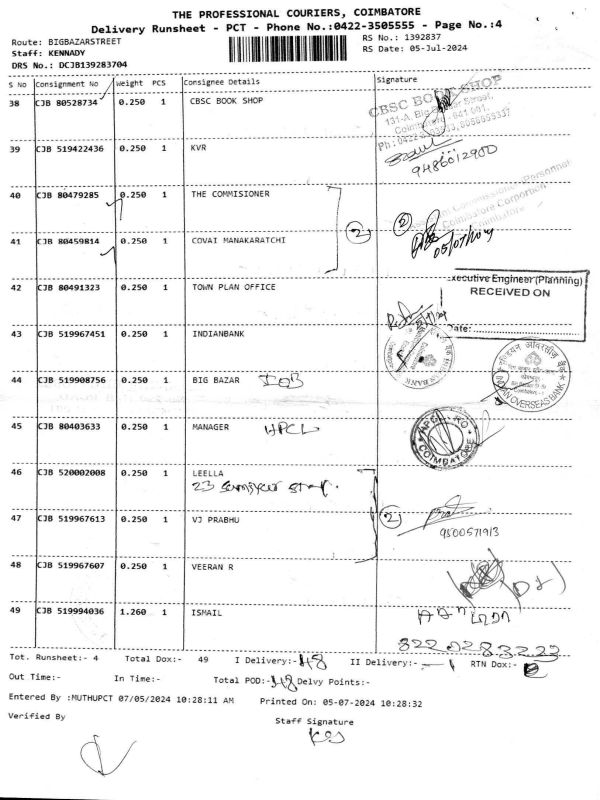 THE PROFESSIONAL COURIERS, COIMBATORE
Delivery Runsheet - PCT - Phone No.:0422-3505555 - Page No.:4
Route: BIGBAZARSTREET
RS No.: 1392837
Staff: KENNADY
RS Date: 05-Jul-2024
DRS No.: DCJB139283704
S No Consignment No Weight PCS Consignee Details Signature
38 CJB 80528734 0.250 1 CBSC BOOK SHOP
CBSC BOOK SHOP
131-A, Big Street,
Coimbatore - 641 001.
39 CJB 519422436 0.250 1 KVR
9486012900
40 CJB 80479285 0.250 1 THE COMMISIONER
Coimbatore Corporation
Coimbatore
2 2
41 CJB 80459814 0.250 1 COVAI MANAKARATCHI
42 CJB 80491323 0.250 1 TOWN PLAN OFFICE
Executive Engineer (Planning)
RECEIVED ON
Date:
43 CJB 519967451 0.250 1 INDIANBANK
44 CJB 519908756 0.250 1 BIG BAZAR IOB
INDIAN OVERSEAS BANK
45 CJB 80403633 0.250 1 MANAGER HPCL
COIMBATORE
46 CJB 520002008 0.250 1 LEELLA
23
47 CJB 519967613 0.250 1 VJ PRABHU 2
9500571913
48 CJB 519967607 0.250 1 VEERAN R
49 CJB 519994036 1.260 1 ISMAIL
Tot. Runsheet:- 4 Total Dox:- 49 I Delivery:- 48 II Delivery:- 1 RTN Dox:-
Out Time:- In Time:- Total POD:- 48 Delvy Points:-
Entered By :MUTHUPCT 07/05/2024 10:28:11 AM Printed On: 05-07-2024 10:28:32
Verified By
Staff Signature